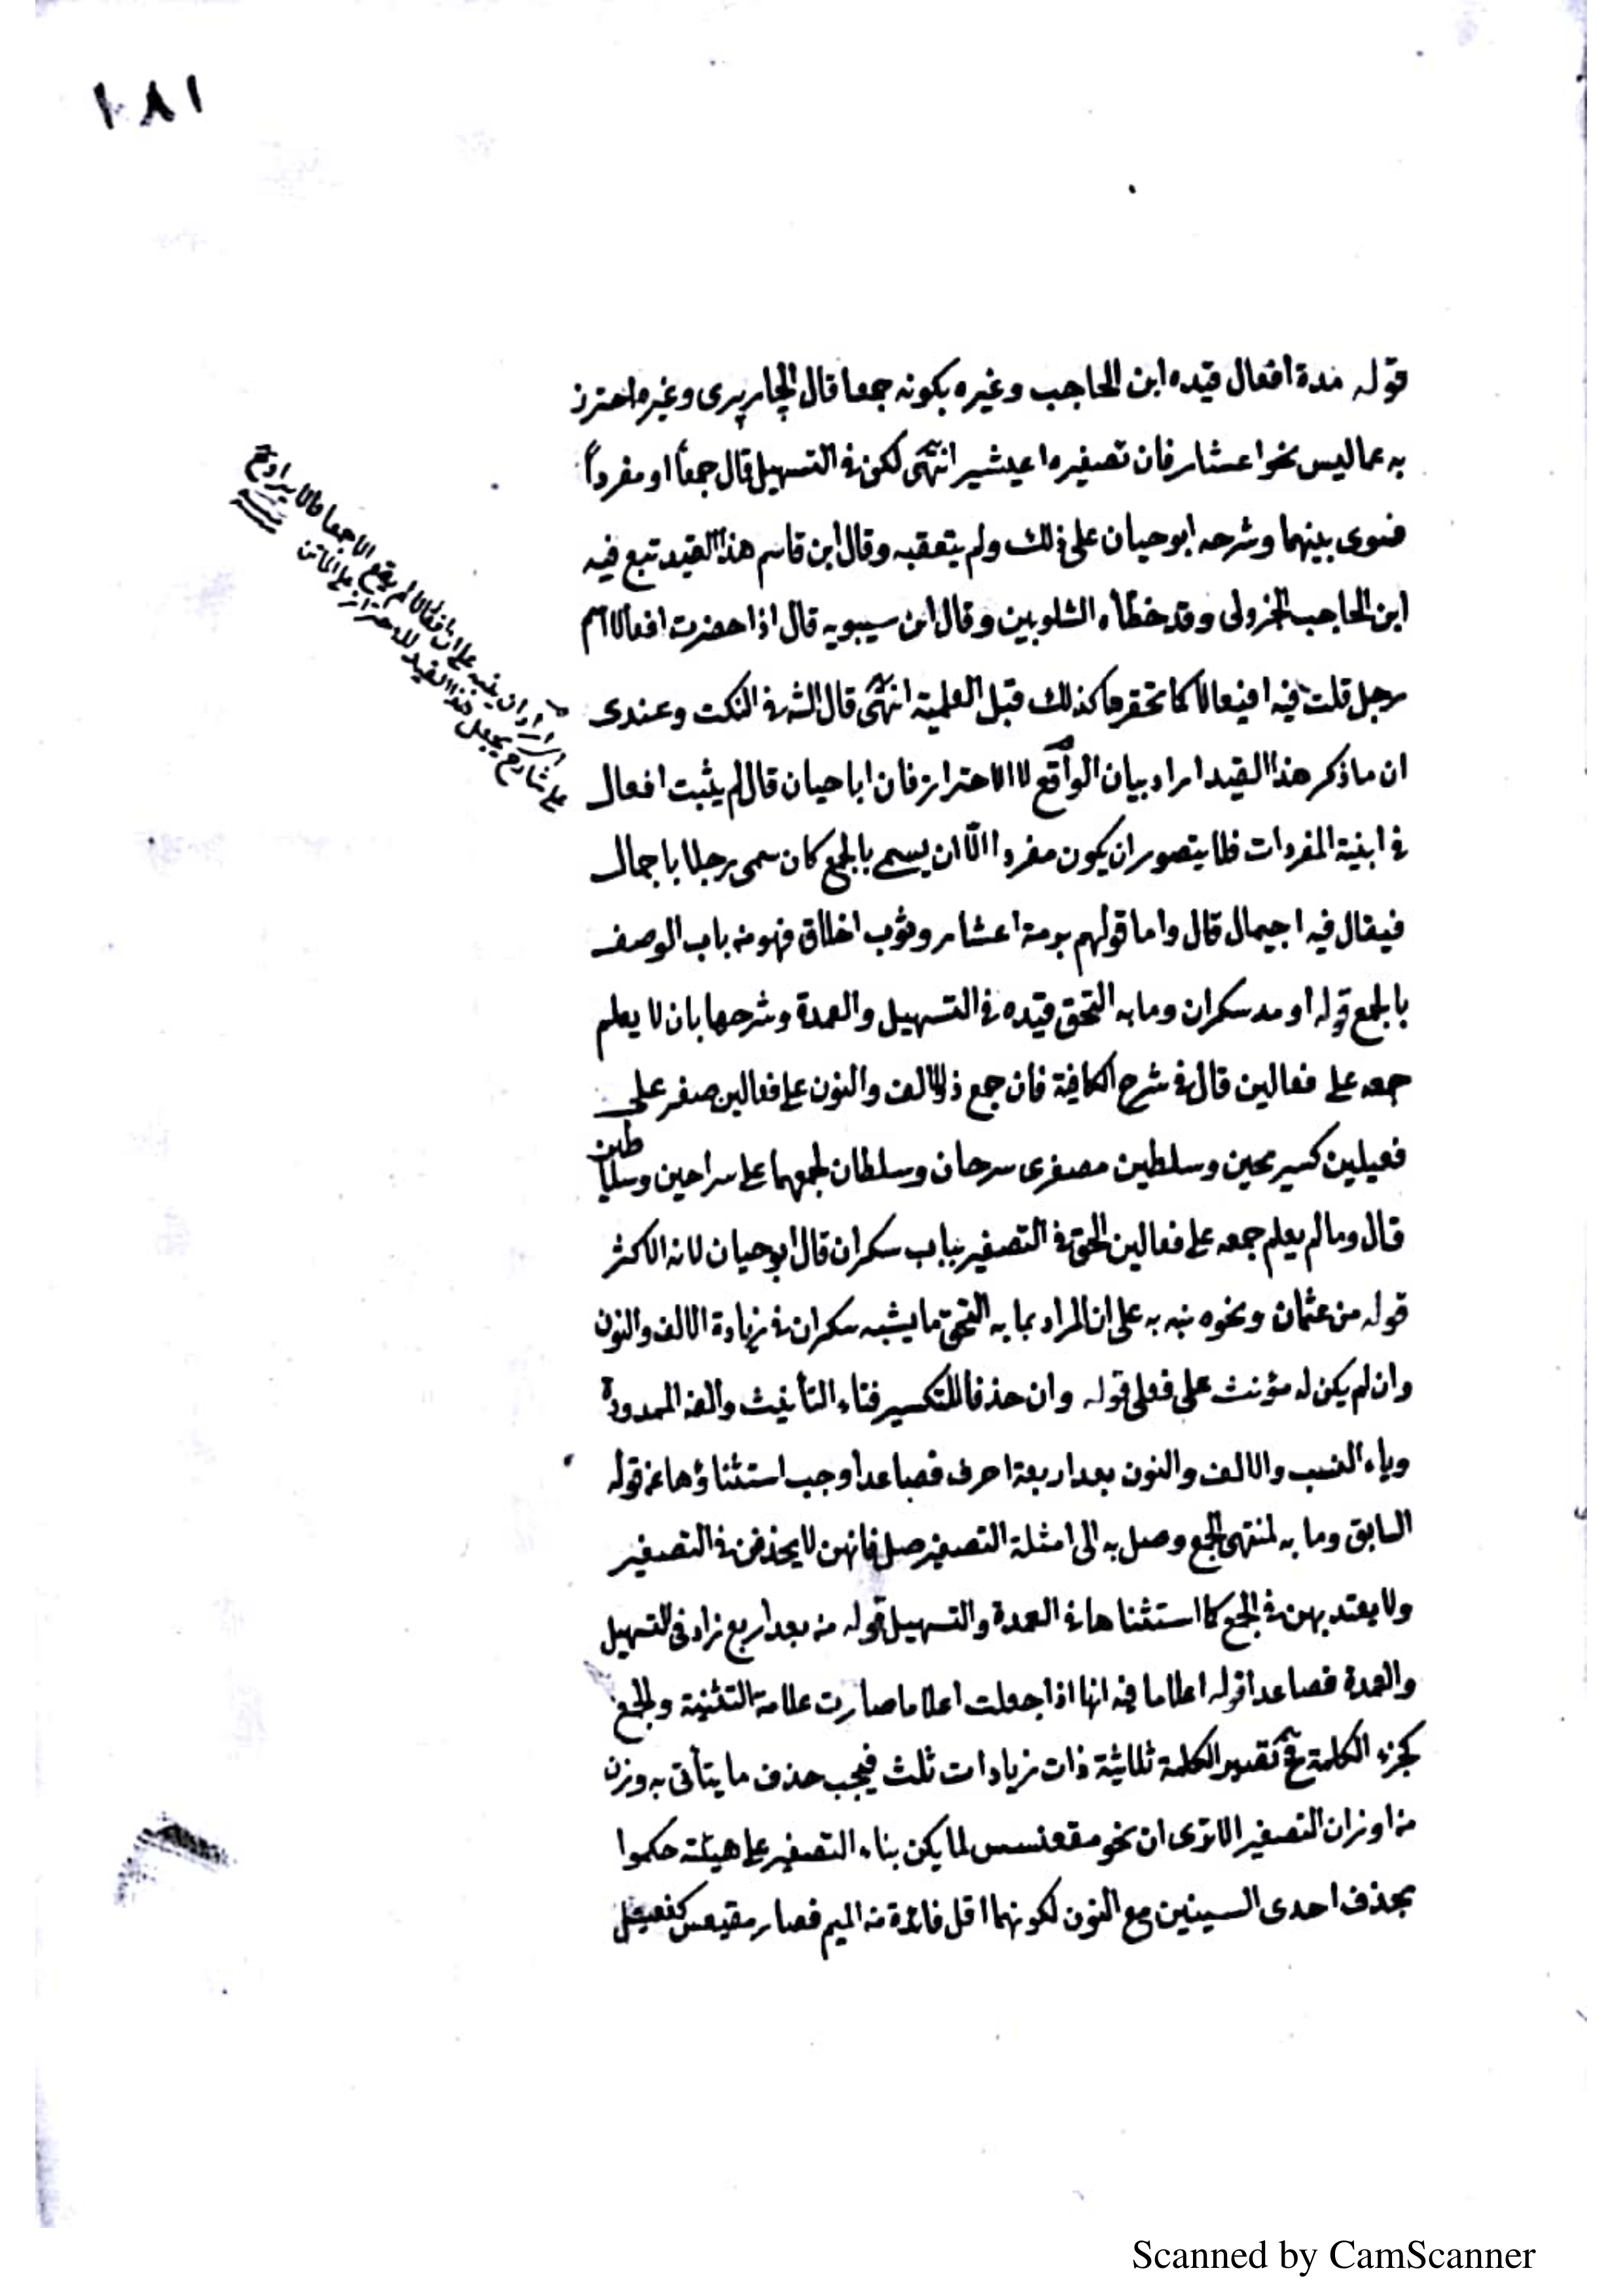 ١٨١
قوله مدة افعال قيده ابن الحاجب وغيره بكونه جمعا قال الجاربردى وغيره احترز
به عما ليس نحو اعشار فان تصغيره اعيشير انتهى لكن فى التسهيل قال جمعاً او مفرداً
فسوى بينهما وشرحه ابو حيان على ذلك ولم يتعقبه وقال ابن قاسم هذا القيد تبع فيه
ابن الحاجب الجزولى وقد خطأه الشلوبين وقال ان سيبويه قال اذا حضرت افعالا اسم
رجل قلت فيه افيعالا كما تحقرها كذلك قبل العلمية انتهى قال الش فى النكت وعندى
ان ما ذكر هذا القيد اراد بيان الواقع لا الاحتراز فان ابا حيان قال لم يثبت افعال
فى ابنية المفردات فلا يتصور ان يكون مفردا الّا ان يسمى بالجمع كان سمى رجلا باجمال
فيقال فيه اجيمال قال واما قولهم برمة اعشار وثوب اخلاق فهو من باب الوصف
بالجمع قوله او مد سكران وما به التحق قيده فى التسهيل والعمدة وشرحها بان لا يعلم
جمعه على فعالين قال فى شرح الكافية فان جمع ذو الالف والنون على فعالين صغر على
فعيلين كسريحين وسلطين مصغرى سرحان وسلطان لجمعهما على سراحين وسلاطين
قال وما لم يعلم جمعه على فعالين الحق فى التصغير بباب سكران قال ابو حيان لانه الاكثر
قوله من عثمان ونحوه نبه به على ان المراد بما به التحق ما يشبه سكران فى زيادة الالف والنون
وان لم يكن له مؤنث على فعلى قوله وان حذفا للتكسير فتاء التأنيث والفه الممدودة
وياء النسب والالف والنون بعد اربعة احرف فصاعدا وجب استثناؤها عن قوله
السابق وما به لمنتهى الجمع وصل به الى امثلة التصغير صل فانهن لا يحذفن فى التصغير
ولا يعتد بهن فى الجمع كما استثناها فى العمدة والتسهيل قوله من بعد اربع زاد فى التسهيل
والعمدة فصاعدا قوله اعلاما فيه انها اذا جعلت اعلاما صارت علامة التثنية والجمع
كجزء الكلمة فح تصير الكلمة ثلاثية ذات زيادات ثلث فيجب حذف ما يتأتى به وزن
من اوزان التصغير الا ترى ان نحو مقعنسس لما يكن بناء التصغير على هيئته حكموا
بحذف احدى السينين مع النون لكونهما اقل فائدة من الميم فصار مقيعس كفعيعل
اراد ان ينبه على ان افعالا لم يقع الا جمعا فلا يراد
على شارح يجعل هذا القيد للاحتراز
Scanned by CamScanner